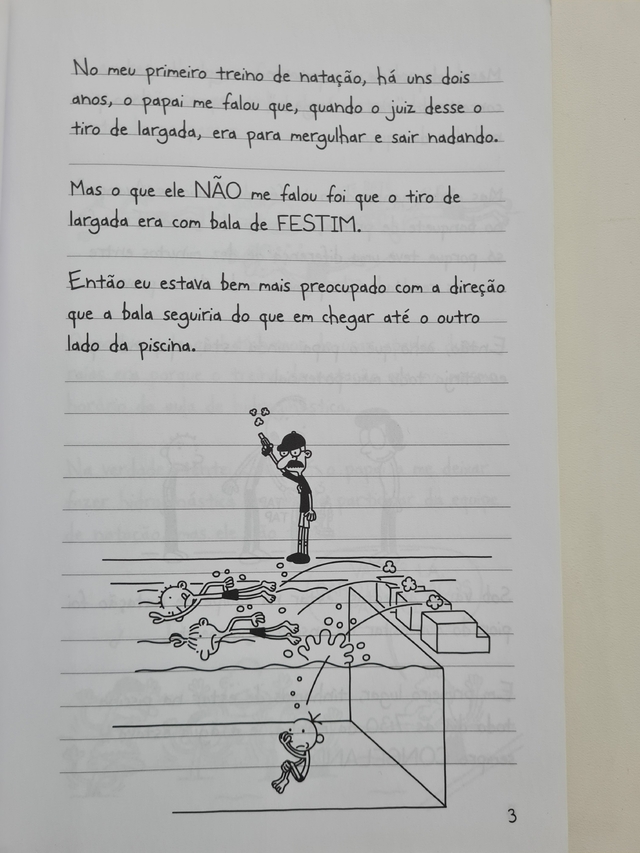 No meu primeiro treino de natação, há uns dois
anos, o papai me falou que, quando o juiz desse o
tiro de largada, era para mergulhar e sair nadando.
Mas o que ele NÃO me falou foi que o tiro de
largada era com bala de FESTIM.
Então eu estava bem mais preocupado com a direção
que a bala seguiria do que em chegar até o outro
lado da piscina.
3